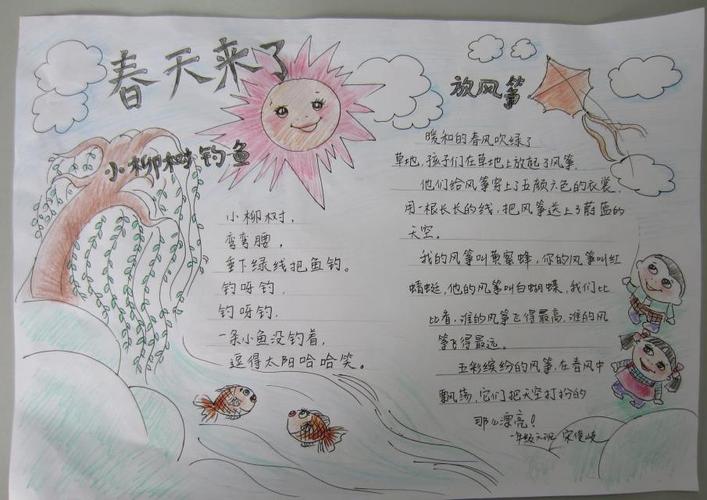 春天来了
小柳树钓鱼
小柳树,
弯弯腰,
垂下绿线把鱼钓。
钓呀钓,
钓呀钓,
一条小鱼没钓着,
逗得太阳哈哈笑。
放风筝
暖和的春风吹绿了
草地,孩子们在草地上放起了风筝。
他们给风筝穿上了五颜六色的衣裳,
用一根长长的线,把风筝送上了蔚蓝的
天空。
我的风筝叫黄蜜蜂,你的风筝叫红
蜻蜓,他的风筝叫白蝴蝶,我们比
比看,谁的风筝飞得最高,谁的风
筝飞得最远。
五彩缤纷的风筝,在春风中
飘荡,它们把天空打扮的
那么漂亮!
一年级六班 宋俊